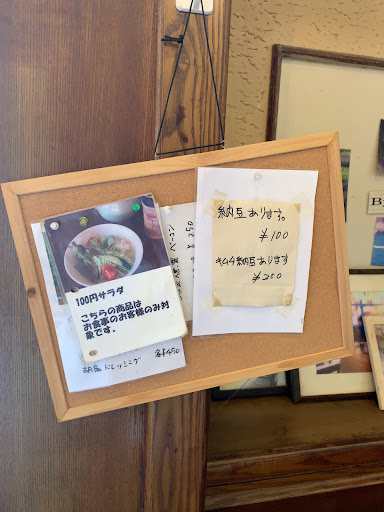 100円サラダ
こちらの商品は
お食事のお客様のみ対
象です。
ドレッシング
各¥450
¥250
納豆あります。
¥100
キムチ納豆あります
¥200